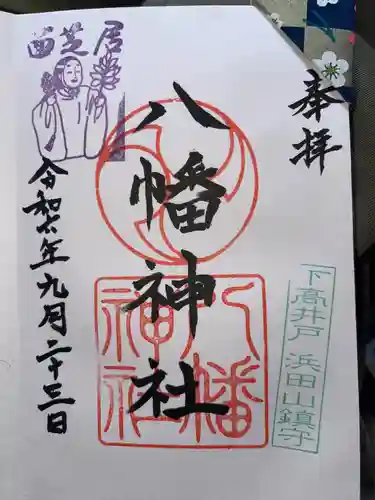 奉拝
八幡神社
八幡
神社
下高井戸 浜田山鎮守
令和六年九月二十三日